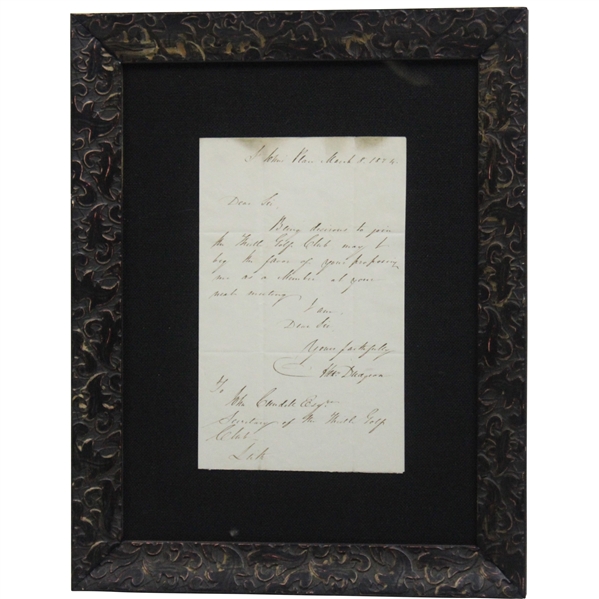 March 8, 1824
Dear Sir,
Being desirous to join
the Thistle Golf Club may I
beg the favor of your proposing
me as a Member at your
next meeting
I am
Dear Sir
Yours faithfully
To
John Esqre
Secretary of the Thistle Golf
Club